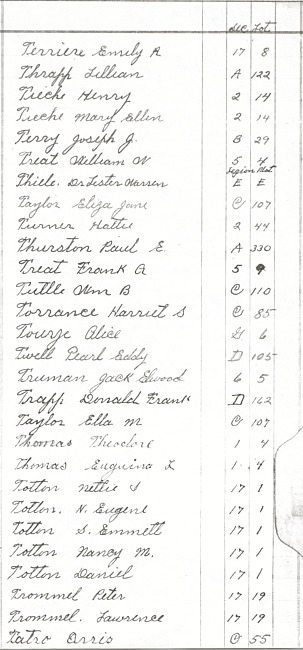 Sec Lot
Terriere Emily R 17 8
Thrapp Lillian A 122
Tieche Henry 2 14
Tieche Mary Ellen 2 14
Terry Joseph J. B 29
Treat William N 5 4
Thiele. Dr Lester Warren E E
Taylor Eliza Jane C 107
Turner Hattie 2 44
Thurston Paul E. A 330
Treat Frank A 5 9
Tuttle Wm B C 110
Torrance Harriet S C 85
Tourge Alice 6
Twell Pearl Eddy D 105
Truman Jack Elwood 6 5
Trapp Donald Frank D 162
Taylor Ella M C 107
Thomas Theodore 1 4
Thomas Euguina L 1 4
Totton Nettie S 17 1
Totton. N. Eugene 17 1
Totton S. Emmett 17 1
Totton Nancy M. 17 1
Totton Daniel 17 1
Trommel Peter 17 19
Trommel. Lawrence 17 19
Tatro Orrio C 55